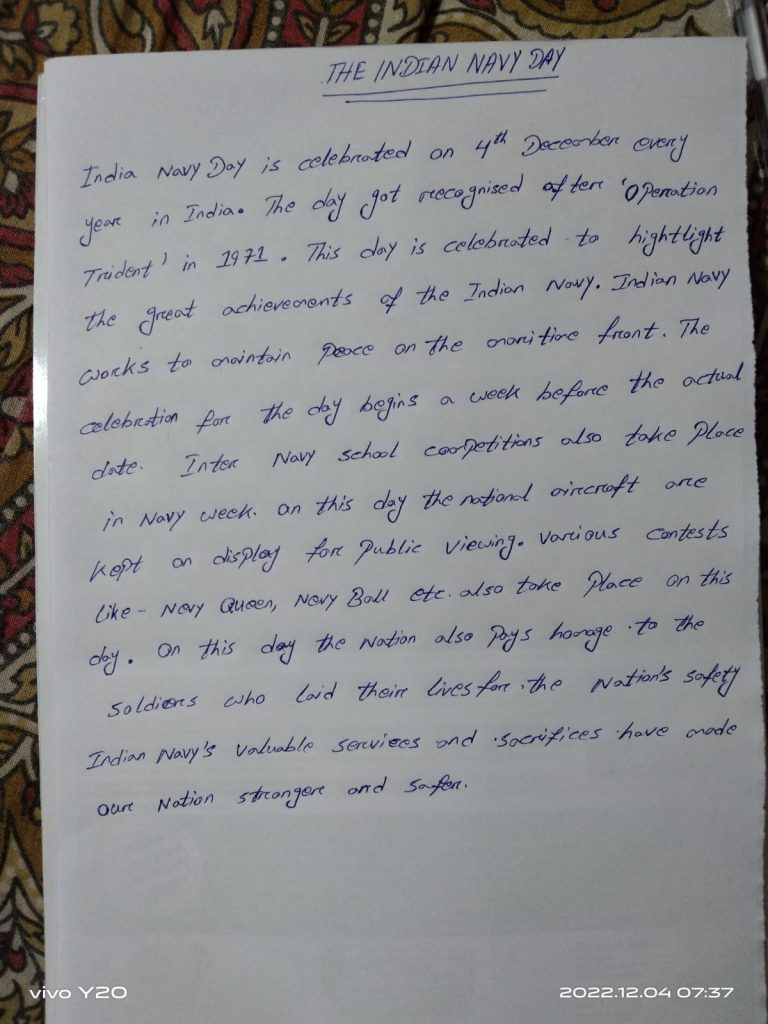 THE INDIAN NAVY DAY
India Navy Day is celebrated on 4th December every
year in India. The day got recognised after 'Operation
Trident' in 1971. This day is celebrated to hightlight
the great achievements of the Indian Navy. Indian Navy
works to maintain peace on the maritime front. The
celebration for the day begins a week before the actual
date. Inter Navy school competitions also take place
in Navy week. on this day the national aircraft are
kept on display for public viewing. various contests
like - Navy Queen, Navy Ball etc. also take place on this
day. On this day the Nation also pays homage to the
soldiers who laid their lives for the Nation's safety
Indian Navy's valuable services and sacrifices have made
our Nation stronger and safer.
vivo Y20
2022.12.04 07:37